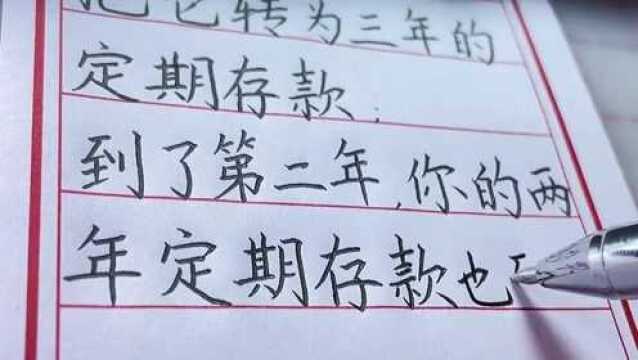 把它转为三年的
定期存款；
到了第二年，你的两
年定期存款也